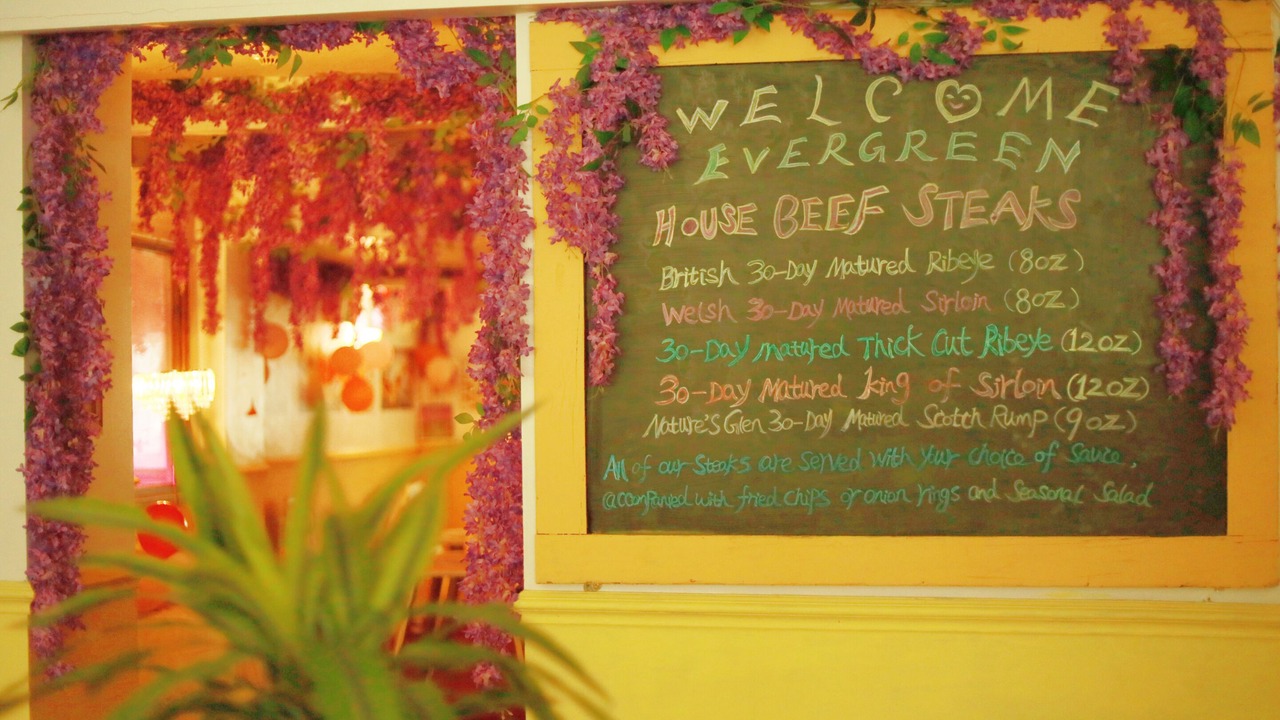 WELCOME
EVERGREEN
HOUSE BEEF STEAKS
British 30-Day Matured Ribeye (8oz)
Welsh 30-Day Matured Sirloin (8oz)
30-Day Matured Thick Cut Ribeye (12oz)
30-Day Matured King of Sirloin (12oz)
Nature's Glen 30-Day Matured Scotch Rump (9oz)
All of our Steaks are Served with your choice of Sauce,
accompanied with fried chips or onion rings and Seasonal Salad